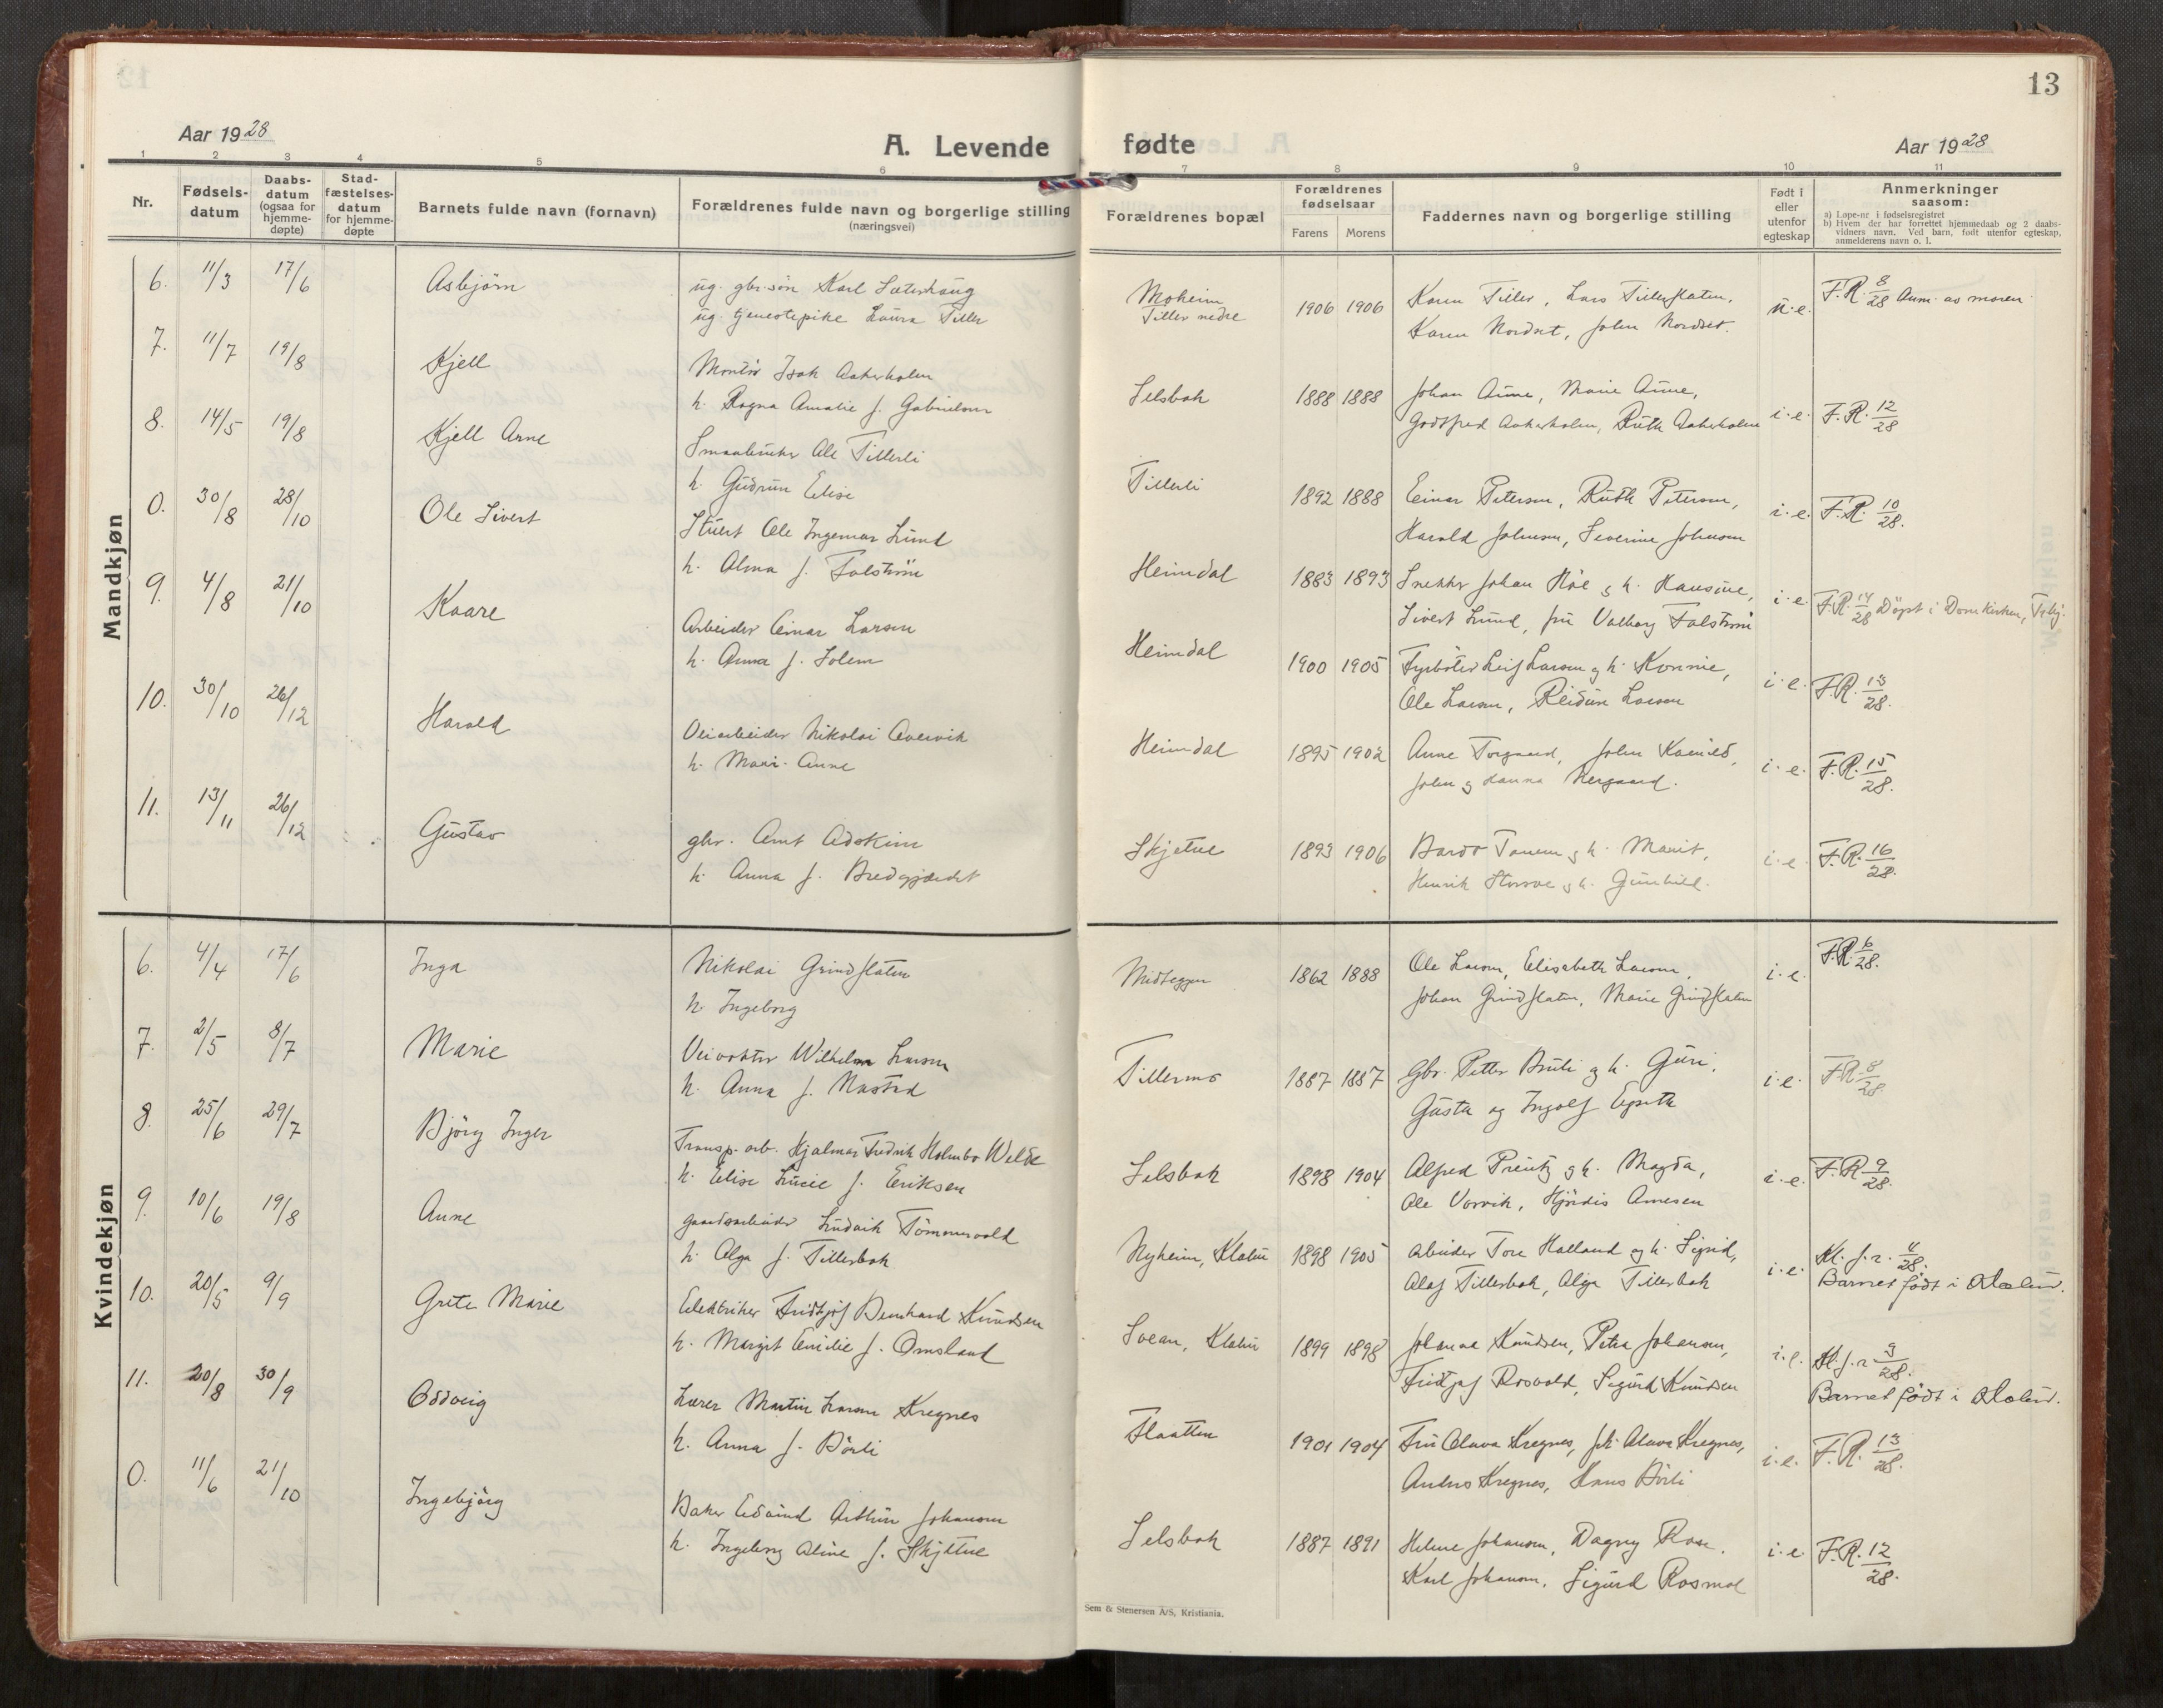 13
Aar 1928
A. Levende fødte
Aar 1928
1 2 3 4 5 6 7 8 9 10 11
Nr.
Fødsels-datum
Daabs-datum (ogsaa for hjemme-døpte)
Stad-fæstelses-datum for hjemme-døpte
Barnets fulde navn (fornavn)
Forældrenes fulde navn og borgerlige stilling
(næringsvei)
Forældrenes bopæl
Forældrenes fødselsaar
Farens Morens
Faddernes navn og borgerlige stilling
Født i eller utenfor egteskap
Anmerkninger
saasom:
a) Løpe-nr i fødselsregistret
b) Hvem der har forrettet hjemmedaab og 2 daabs-
vidners navn. Ved barn, født utenfor egteskap,
anmelderens navn o. l.
Mandkjøn
6. 11/3 17/6 Asbjørn ug. gbr.søn Karl Sæterhaug Moheim 1906 1906 Karen Tiller, Lars Tillerflaten, u.e. F.R. 8/28 Anm. av moren
ug. tjenestepike Laura Tiller Tiller nedre Karen Nordset, John Nordset.
7. 11/7 19/8 Kjell Montør Isak Aakerholm Selsbak 1888 1888 Johan Aune, Marie Aune, i.e. F.R. 12/28
h. Ragna Amalie f. Gabrielsen Godtfred Aakerholm, Ruth Aakerholm
8. 14/5 19/8 Kjell Arne Smaabruker Ole Tillerli Tillerli 1892 1888 Einar Petersen, Ruth Petersen, i.e. F.R. 10/28.
h. Gudrun Elise Harald Johnsen, Severine Johnsen
0. 30/8 28/10 Ole Sivert Stuert Ole Ingemar Lund Heimdal 1883 1893 Snekker Johan Høe og h. Hansine, i.e. F.R. 14/28 Døpt i Domkirken,
h. Alma f. Falstrøm Sivert Lund, fru Valborg Falstrøm
9. 4/8 21/10 Kaare Arbeider Einar Larsen Heimdal 1900 1905 Fyrbøter Leif Larsen og h. i.e. F.R. 13/28.
h. Anna f. Solem Ole Larsen, Reidun Larsen
10. 30/10 26/12 Harald Veiarbeider Nikolai Heimdal 1895 1902 Anne John i.e. F.R. 15/28.
h. Mari Anne John og Hanna
11. 13/11 26/12 Gustav gbr. Arnt Skjetne 1893 1906 Bardo Tanem og h. Marit, i.e. F.R. 16/28.
h. Anna f. Henrik Storroe og h. Gunhild.
Kvindekjøn
6. 4/4 17/6 Inga Nikolai Grindflaten Midteggen 1862 1888 Ole Larsen, Elisabeth Larsen, i.e. F.R. 6/28.
h. Ingeborg Johan Grindflaten, Marie Grindflaten
7. 2/5 8/7 Marie Veivokter Wilhelm Larsen Tillermo 1887 1887 Gbr. Petter Bruli og h. Guri, i.e. F.R. 8/28.
h. Anna f. Mastad Gusta og Ingolf
8. 25/6 29/7 Bjørg Inger Transp. arb. Hjalmar Fredrik Holmbo Welde Selsbak 1898 1904 Alfred Preutz og h. Magda, i.e. F.R. 9/28.
h. Elise Lucie f. Eriksen Ole Vorvik, Hjørdis Arnesen
9. 10/6 19/8 Anne gaardsarbeider Ludvik Tømmervold Nyheim, Klæbu 1898 1905 Arbeider Tore Halland og h. Sigrid, i.e. Kl. f.r. 4/28.
h. Olga f. Tillerbak Olaf Tillerbak, Olga Tillerbak Barnet født i Klæbu.
10. 20/5 9/9 Grete Marie Elektriker Fridtjof Bernhard Knudsen Svean, Klæbu 1899 1898 Johanna Knudsen, Petra Johansen, i.e. Kl. f.r. 3/28.
h. Margit Emilie f. Omsland Fridtjof Rosvold, Sigurd Knudsen Barnet født i Klæbu.
11. 20/8 30/9 Oddveig Lærer Martin Larsen Kregnes Flaatten 1901 1904 Fru Olava Kregnes, frk. Olava Kregnes, i.e. F.R. 13/28.
h. Anna f. Børli Anders Kregnes, Hans Børli
0. 11/6 21/10 Ingebjørg Baker Edvind Arthur Johansen Selsbak 1887 1891 Helene Johansen, Dagny Rose. i.e. F.R. 12/28.
h. Ingeborg Oline f. Skjetne Karl Johansen, Sigurd Rosmæl
Sem & Stenersen A/S, Kristiania.